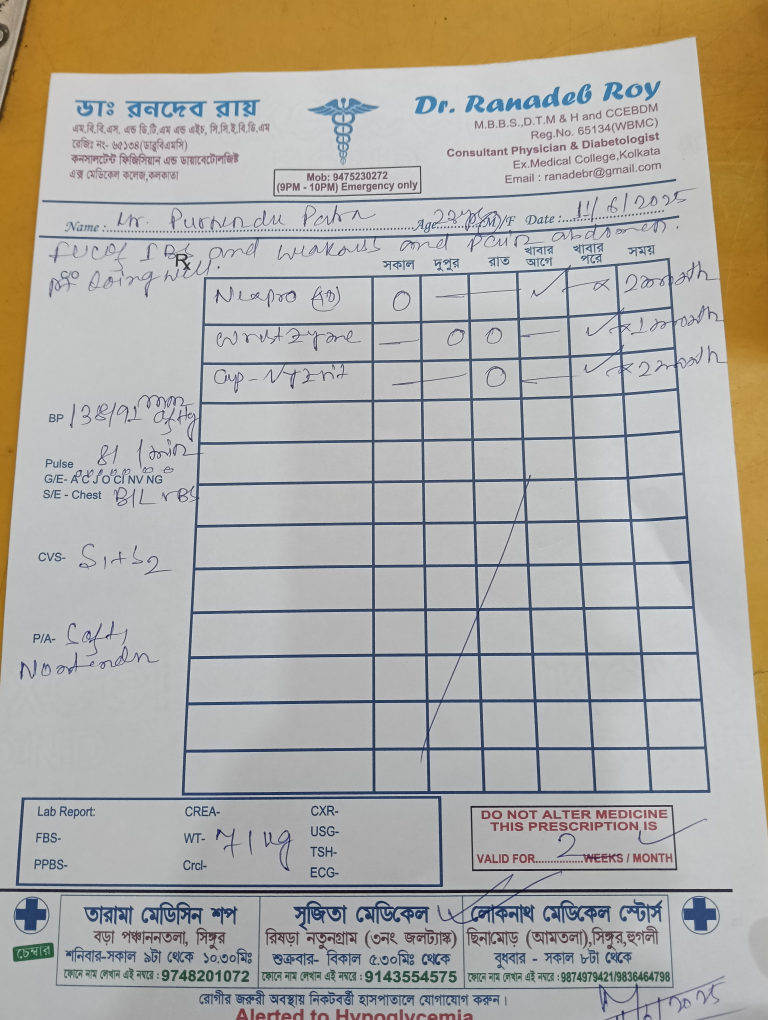 ডাঃ রনদেব রায়
এম.বি.বি.এস. এন্ড ডি.টি.এম এন্ড এইচ, সি.সি.ই.বি.ডি.এম
রেজিঃ নং- ৬৫১৩৪(ডাব্লুবিএমসি)
কনসালটেন্ট ফিজিসিয়ান এন্ড ডায়াবেটোলজিষ্ট
এক্স মেডিকেল কলেজ,কলকাতা
Mob: 9475230272
(9PM - 10PM) Emergency only
Dr. Ranadeb Roy
M.B.B.S.,D.T.M & H and CCEBDM
Reg.No. 65134(WBMC)
Consultant Physician & Diabetologist
Ex.Medical College,Kolkata
Email : ranadebr@gmail.com
Name : Mr. Purnendu Patra Age M/F Date : 11/6/2025
and weakness and pain abdomen.
Rx
pt doing well.
সকাল দুপুর রাত খাবার আগে খাবার পরে সময়
O — — ✓ × 2 month
— O O — ✓ × 1 month
Cap- — O — ✓ × 2 month
BP 138/91 mm of Hg
Pulse 81 /min
G/E- A C J O Cl NV NG
S/E - Chest B/L VBS
CVS- S1+S2
P/A- Soft,
Lab Report: CREA- CXR-
FBS- WT- 71 kg USG-
PPBS- Crcl- TSH-
ECG-
DO NOT ALTER MEDICINE
THIS PRESCRIPTION IS
VALID FOR 2 WEEKS / MONTH
চেম্বার
তারামা মেডিসিন শপ
বড়া পঞ্চাননতলা, সিঙ্গুর
শনিবার-সকাল ৯টা থেকে ১০.৩০মিঃ
ফোনে নাম লেখান এই নম্বরে : 9748201072
সৃজিতা মেডিকেল
রিষড়া নতুনগ্রাম (৩নং জলট্যাঙ্ক)
শুক্রবার- বিকাল ৫.৩০মিঃ থেকে
ফোনে নাম লেখান এই নম্বরে : 9143554575
লোকনাথ মেডিকেল স্টোর্স
ছিনামোড় (আমতলা),সিঙ্গুর,হুগলী
বুধবার - সকাল ৮টা থেকে
ফোনে নাম লেখান এই নম্বরে : 9874979421/9836464798
রোগীর জরুরী অবস্থায় নিকটবর্ত্তী হাসপাতালে যোগাযোগ করুন।
Alerted to Hypoglycemia